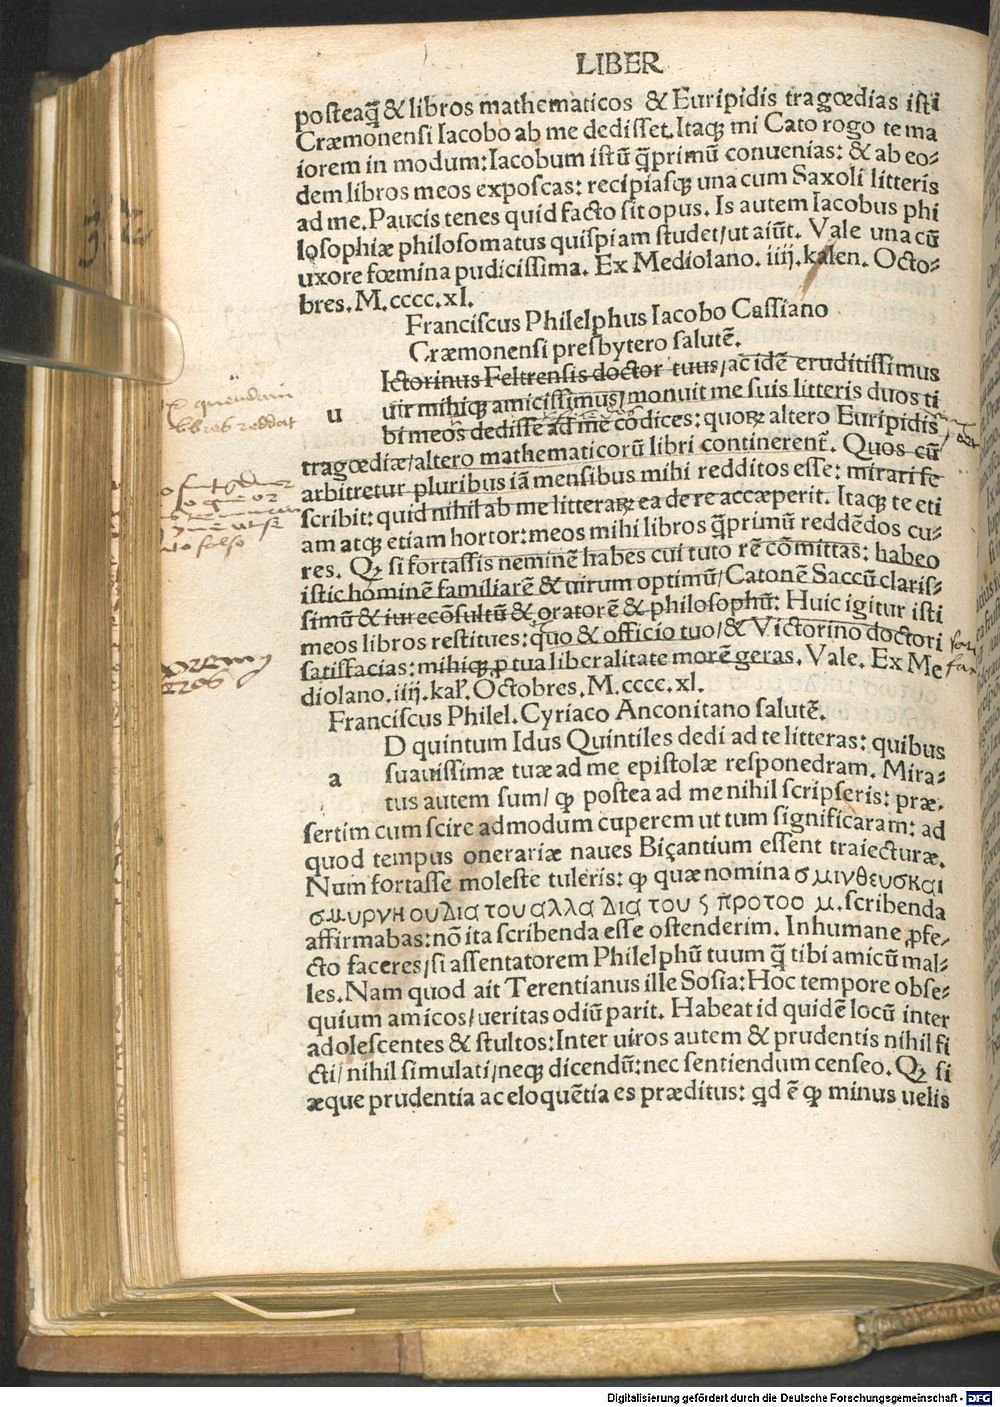 LIBER
posteaq̃ & libros mathematicos & Euripidis tragœdias isti
Cræmonensi Iacobo ab me dedisset. Itaqꝫ mi Cato rogo te ma
iorem in modum: Iacobum istũ q̃primũ conuenias: & ab eo⸗
dem libros meos exposcas: recipiasqꝫ una cum Saxoli litteris
ad me. Paucis tenes quid facto sit opus. Is autem Iacobus phi
losophiæ philosomatus quispiam studet/ut aiũt. Vale una cũ
uxore fœmina pudicissima. Ex Mediolano. iiij. kalen. Octo⸗
bres. M.cccc.xl.
Franciscus Philelphus Iacobo Cassiano
Cræmonensi presbytero salutẽ.
Ictorinus Feltrensis doctor tuus/ac idẽ eruditissimus
u uir mihiqꝫ amicissimus/monuit me suis litteris duos ti
bi meos dedisse ad me codices: quoꝝ altero Euripidis
tragœdiæ/altero mathematicorũ libri continerent̃. Quos cũ
arbitretur pluribus iã mensibus mihi redditos esse: mirari se
scribit: quid nihil ab me litteraꝝ ea de re accæperit. Itaqꝫ te eti
am atqꝫ etiam hortor: meos mihi libros q̃primũ reddẽdos cu⸗
res. Qꝫ si fortassis neminẽ habes cui tuto rẽ cõmittas: habeo
istic hominẽ familiarẽ & uirum optimũ/Catonẽ Saccũ claris⸗
simũ & iurecõsultũ & oratorẽ & philosophũ: Huic igitur isti
meos libros restitues: quo & officio tuo/& Victorino doctori
satisfacias: mihiqꝫ ꝓ tua liberalitate morẽ geras. Vale. Ex Me
diolano. iiij. kaľ. Octobres. M.cccc.xl.
Franciscus Philel. Cyriaco Anconitano salutẽ.
D quintum Idus Quintiles dedi ad te litteras: quibus
a suauissimæ tuæ ad me epistolæ responedram. Mira⸗
tus autem sum/ ꝙ postea ad me nihil scripseris: præ.
sertim cum scire admodum cuperem ut tum significaram: ad
quod tempus onerariæ naues Biçantium essent traiecturæ.
Num fortasse moleste tuleris: ꝙ quæ nomina σμινθευσκαι
σμυρνη ουδια του αλλα δια του ϛ π̃ροτοσ μ. scribenda
affirmabas: nõ ita scribenda esse ostenderim. Inhumane ꝓfe⸗
cto faceres/si assentatorem Philelphũ tuum q̃ tibi amicũ mal⸗
les. Nam quod ait Terentianus ille Sosia: Hoc tempore obse⸗
quium amicos/ueritas odiũ parit. Habeat id quidẽ locũ inter
adolescentes & stultos: Inter uiros autem & prudentis nihil fi
cti/ nihil simulati/neqꝫ dicendũ: nec sentiendum censeo. Qꝫ si
æque prudentia ac eloquẽtia es præditus: qd ẽ ꝙ minus uelis
quendam
libros reddat
falso
Digitalisierung gefördert durch die Deutsche Forschungsgemeinschaft - DFG